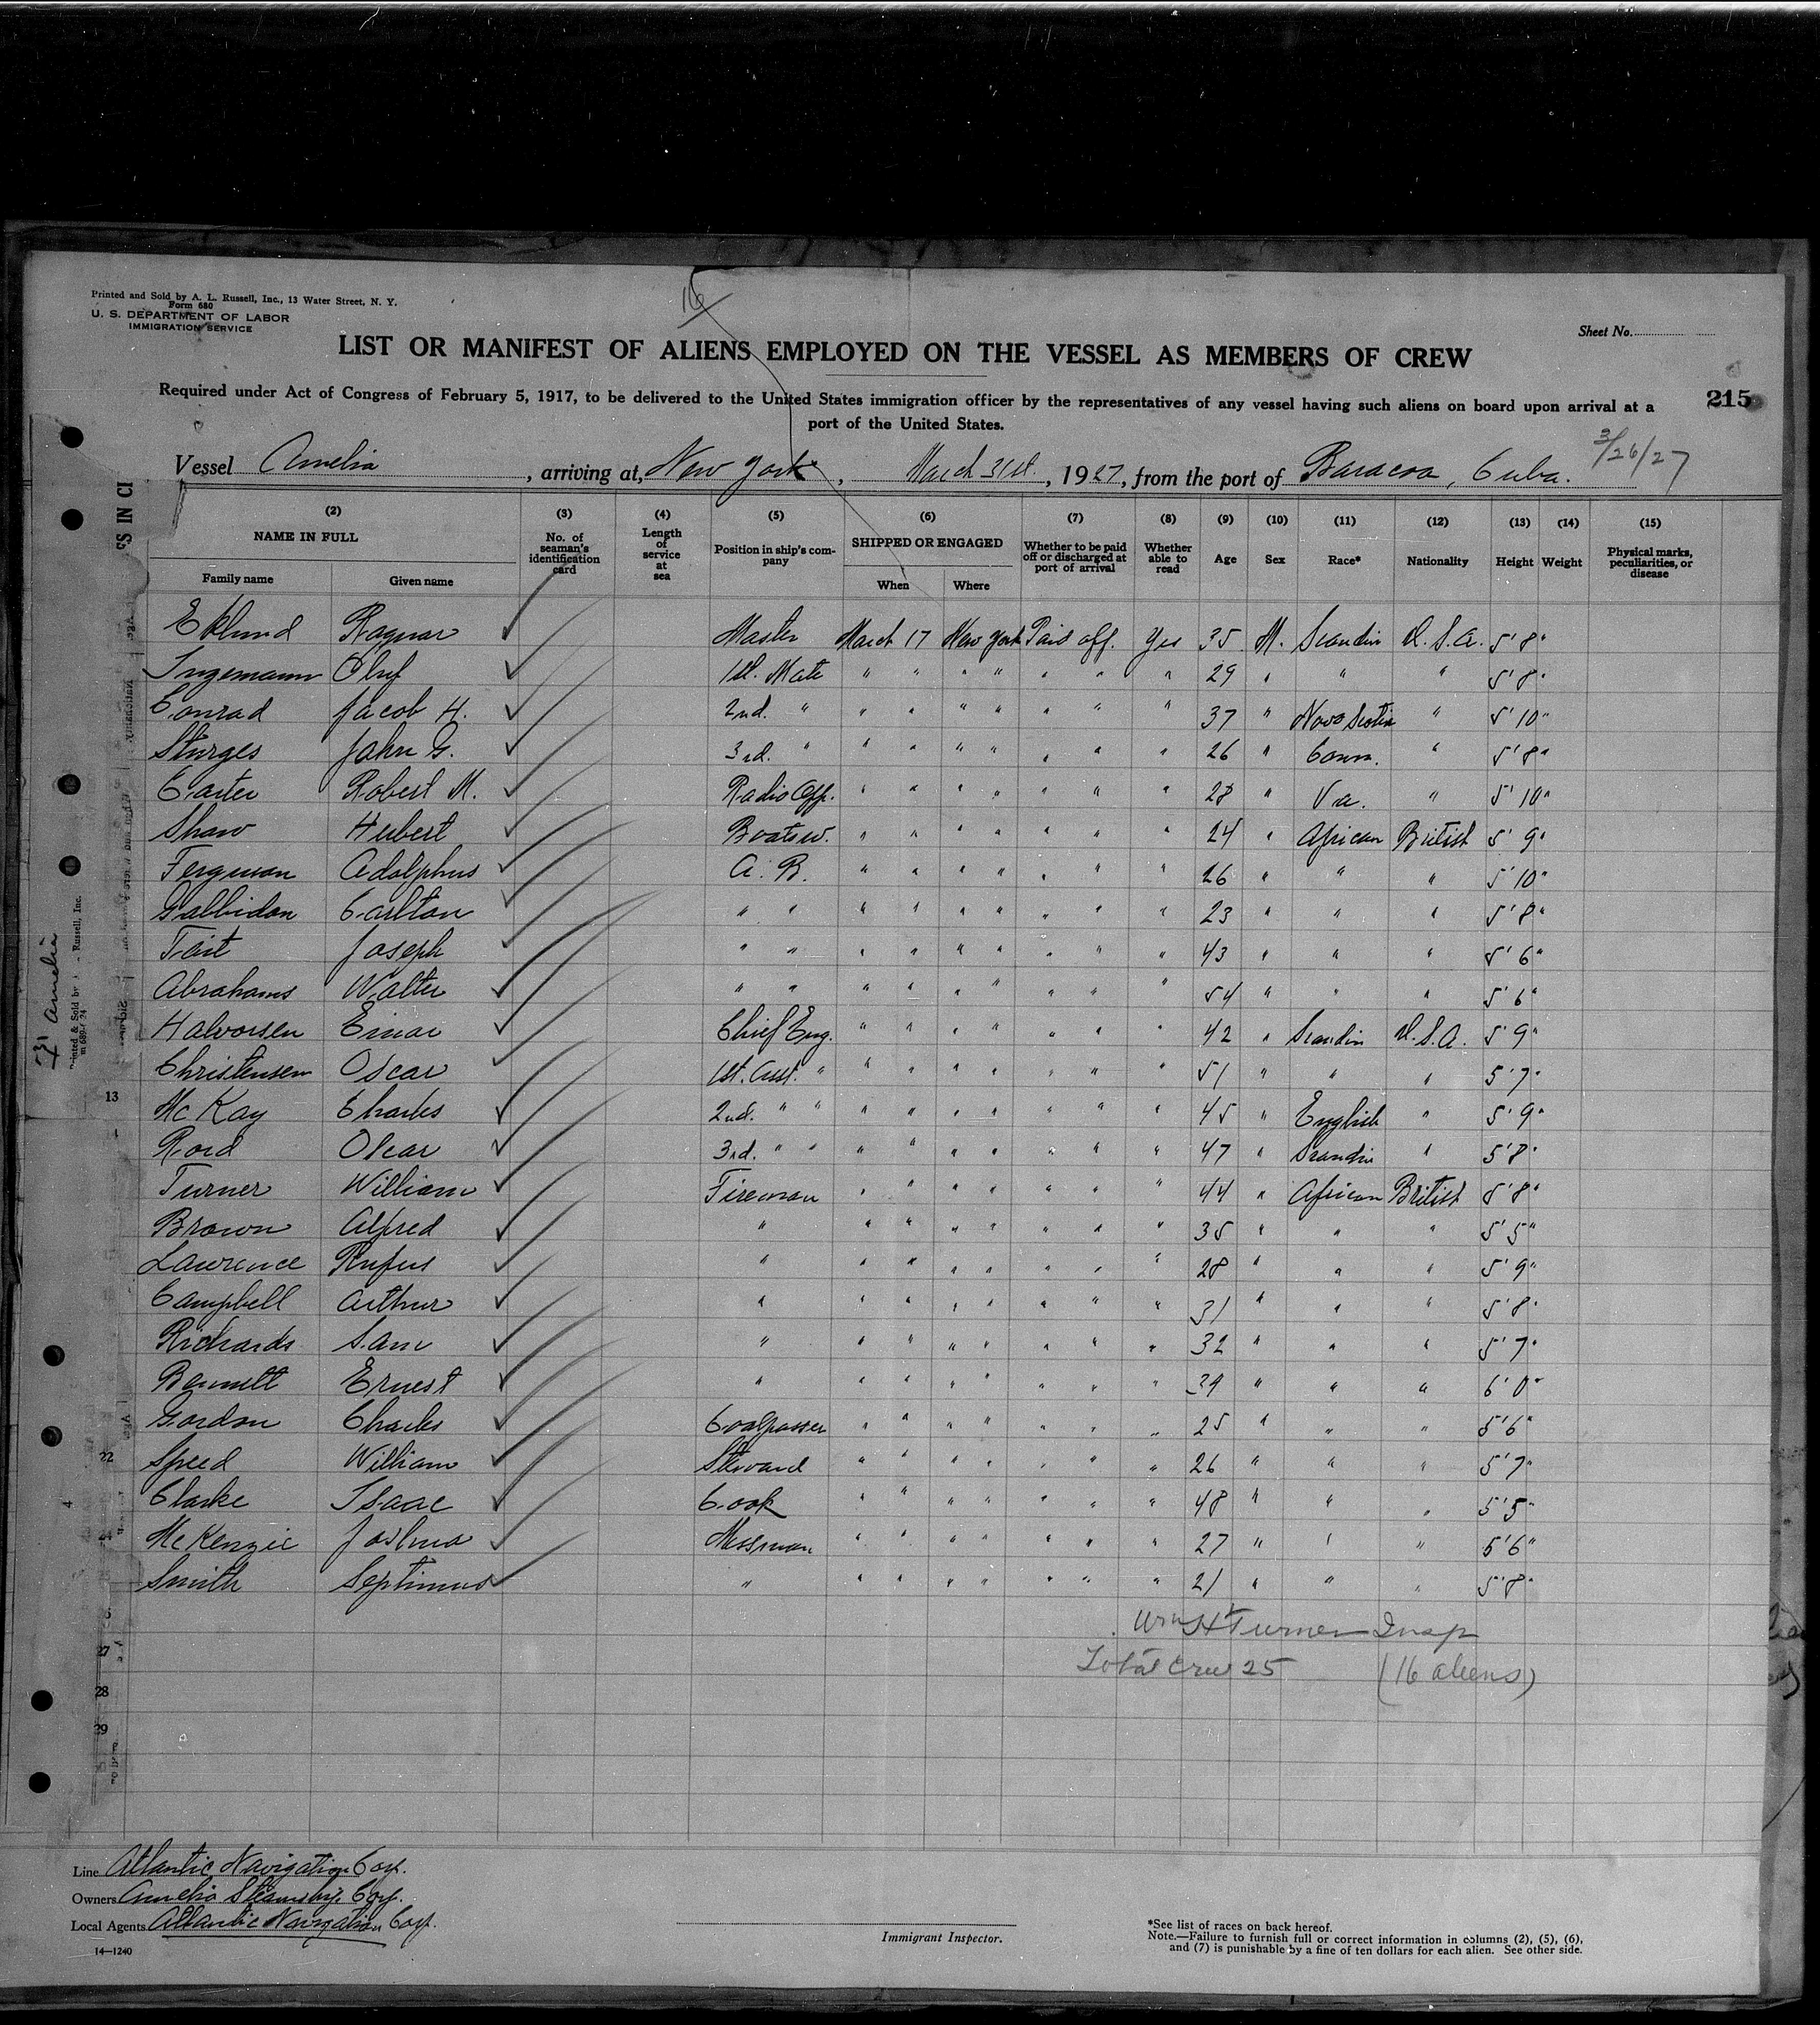 16
Printed and Sold by A. L. Russell, Inc., 13 Water Street, N. Y.
Form 680
U. S. DEPARTMENT OF LABOR
IMMIGRATION SERVICE
Sheet No.
LIST OR MANIFEST OF ALIENS EMPLOYED ON THE VESSEL AS MEMBERS OF CREW
Required under Act of Congress of February 5, 1917, to be delivered to the United States immigration officer by the representatives of any vessel having such aliens on board upon arrival at a
port of the United States.
215
3/26/27
Vessel Amelia, arriving at, New York, March 31st, 1927, from the port of Baracoa, Cuba.
(2) (3) (4) (5) (6) (7) (8) (9) (10) (11) (12) (13) (14) (15)
NAME IN FULL No. of seaman's identification card Length of service at sea Position in ship's company SHIPPED OR ENGAGED Whether to be paid off or discharged at port of arrival Whether able to read Age Sex Race* Nationality Height Weight Physical marks, peculiarities, or disease
Family name Given name When Where
Eklund Ragnar Master March 17 New York Paid off. Yes 35 M. Scandin U.S.A. 5'8"
Ingemann Oluf 1st. Mate " " " " " " " 29 " " " 5'8"
Conrad Jacob H. 2nd. " " " " " " " " 37 " Nova Scotia " 5'10"
Sturges John G. 3rd. " " " " " " " " 26 " Conn. " 5'8"
Carter Robert M. Radio Opp. " " " " " " " 28 " Va. " 5'10"
Shaw Hubert Boatsw. " " " " " " " 24 " African British 5'9"
Ferguson Adolphus A. B. " " " " " " " 26 " " " 5'10"
Gabbidon Carlton " " " " " " " " " 23 " " " 5'8"
Tait Joseph " " " " " " " " " 43 " " " 5'6"
Abrahams Walter " " " " " " " " " 54 " " " 5'6"
Halvorsen Einar Chief Eng. " " " " " " " 42 " Scandin U.S.A. 5'9"
Christensen Oscar 1st. Asst. " " " " " " " " 51 " " " 5'7"
13 McKay Charles 2nd. " " " " " " " " " 45 " English " 5'9"
Rord Oscar 3rd. " " " " " " " " " 47 " Scandin " 5'8"
Turner William Fireman " " " " " " " 44 " African British 5'8"
Brown Alfred " " " " " " " " 35 " " " 5'5"
Lawrence Rufus " " " " " " " " 28 " " " 5'9"
Campbell Arthur " " " " " " " " 31 " " " 5'8"
Richards Sam " " " " " " " " 32 " " " 5'7"
Bennett Ernest " " " " " " " " 39 " " " 6'0"
Gordon Charles Coalpasser " " " " " " " 25 " " " 5'6"
22 Speed William Steward " " " " " " " 26 " " " 5'7"
Clarke Isaac Cook " " " " " " " 48 " " " 5'5"
24 McKenzie Joshua Messman " " " " " " " 27 " " " 5'6"
Smith Septimus " " " " " " " " 21 " " " 5'8"
Wm H Turner Insp
27
Total Crew 25 (16 aliens)
28
29
Line Atlantic Navigation Corp.
Owners Amelia Steamship Corp.
Local Agents Atlantic Navigation Corp.
14—1240
Immigrant Inspector.
*See list of races on back hereof.
Note.—Failure to furnish full or correct information in columns (2), (5), (6),
and (7) is punishable by a fine of ten dollars for each alien. See other side.